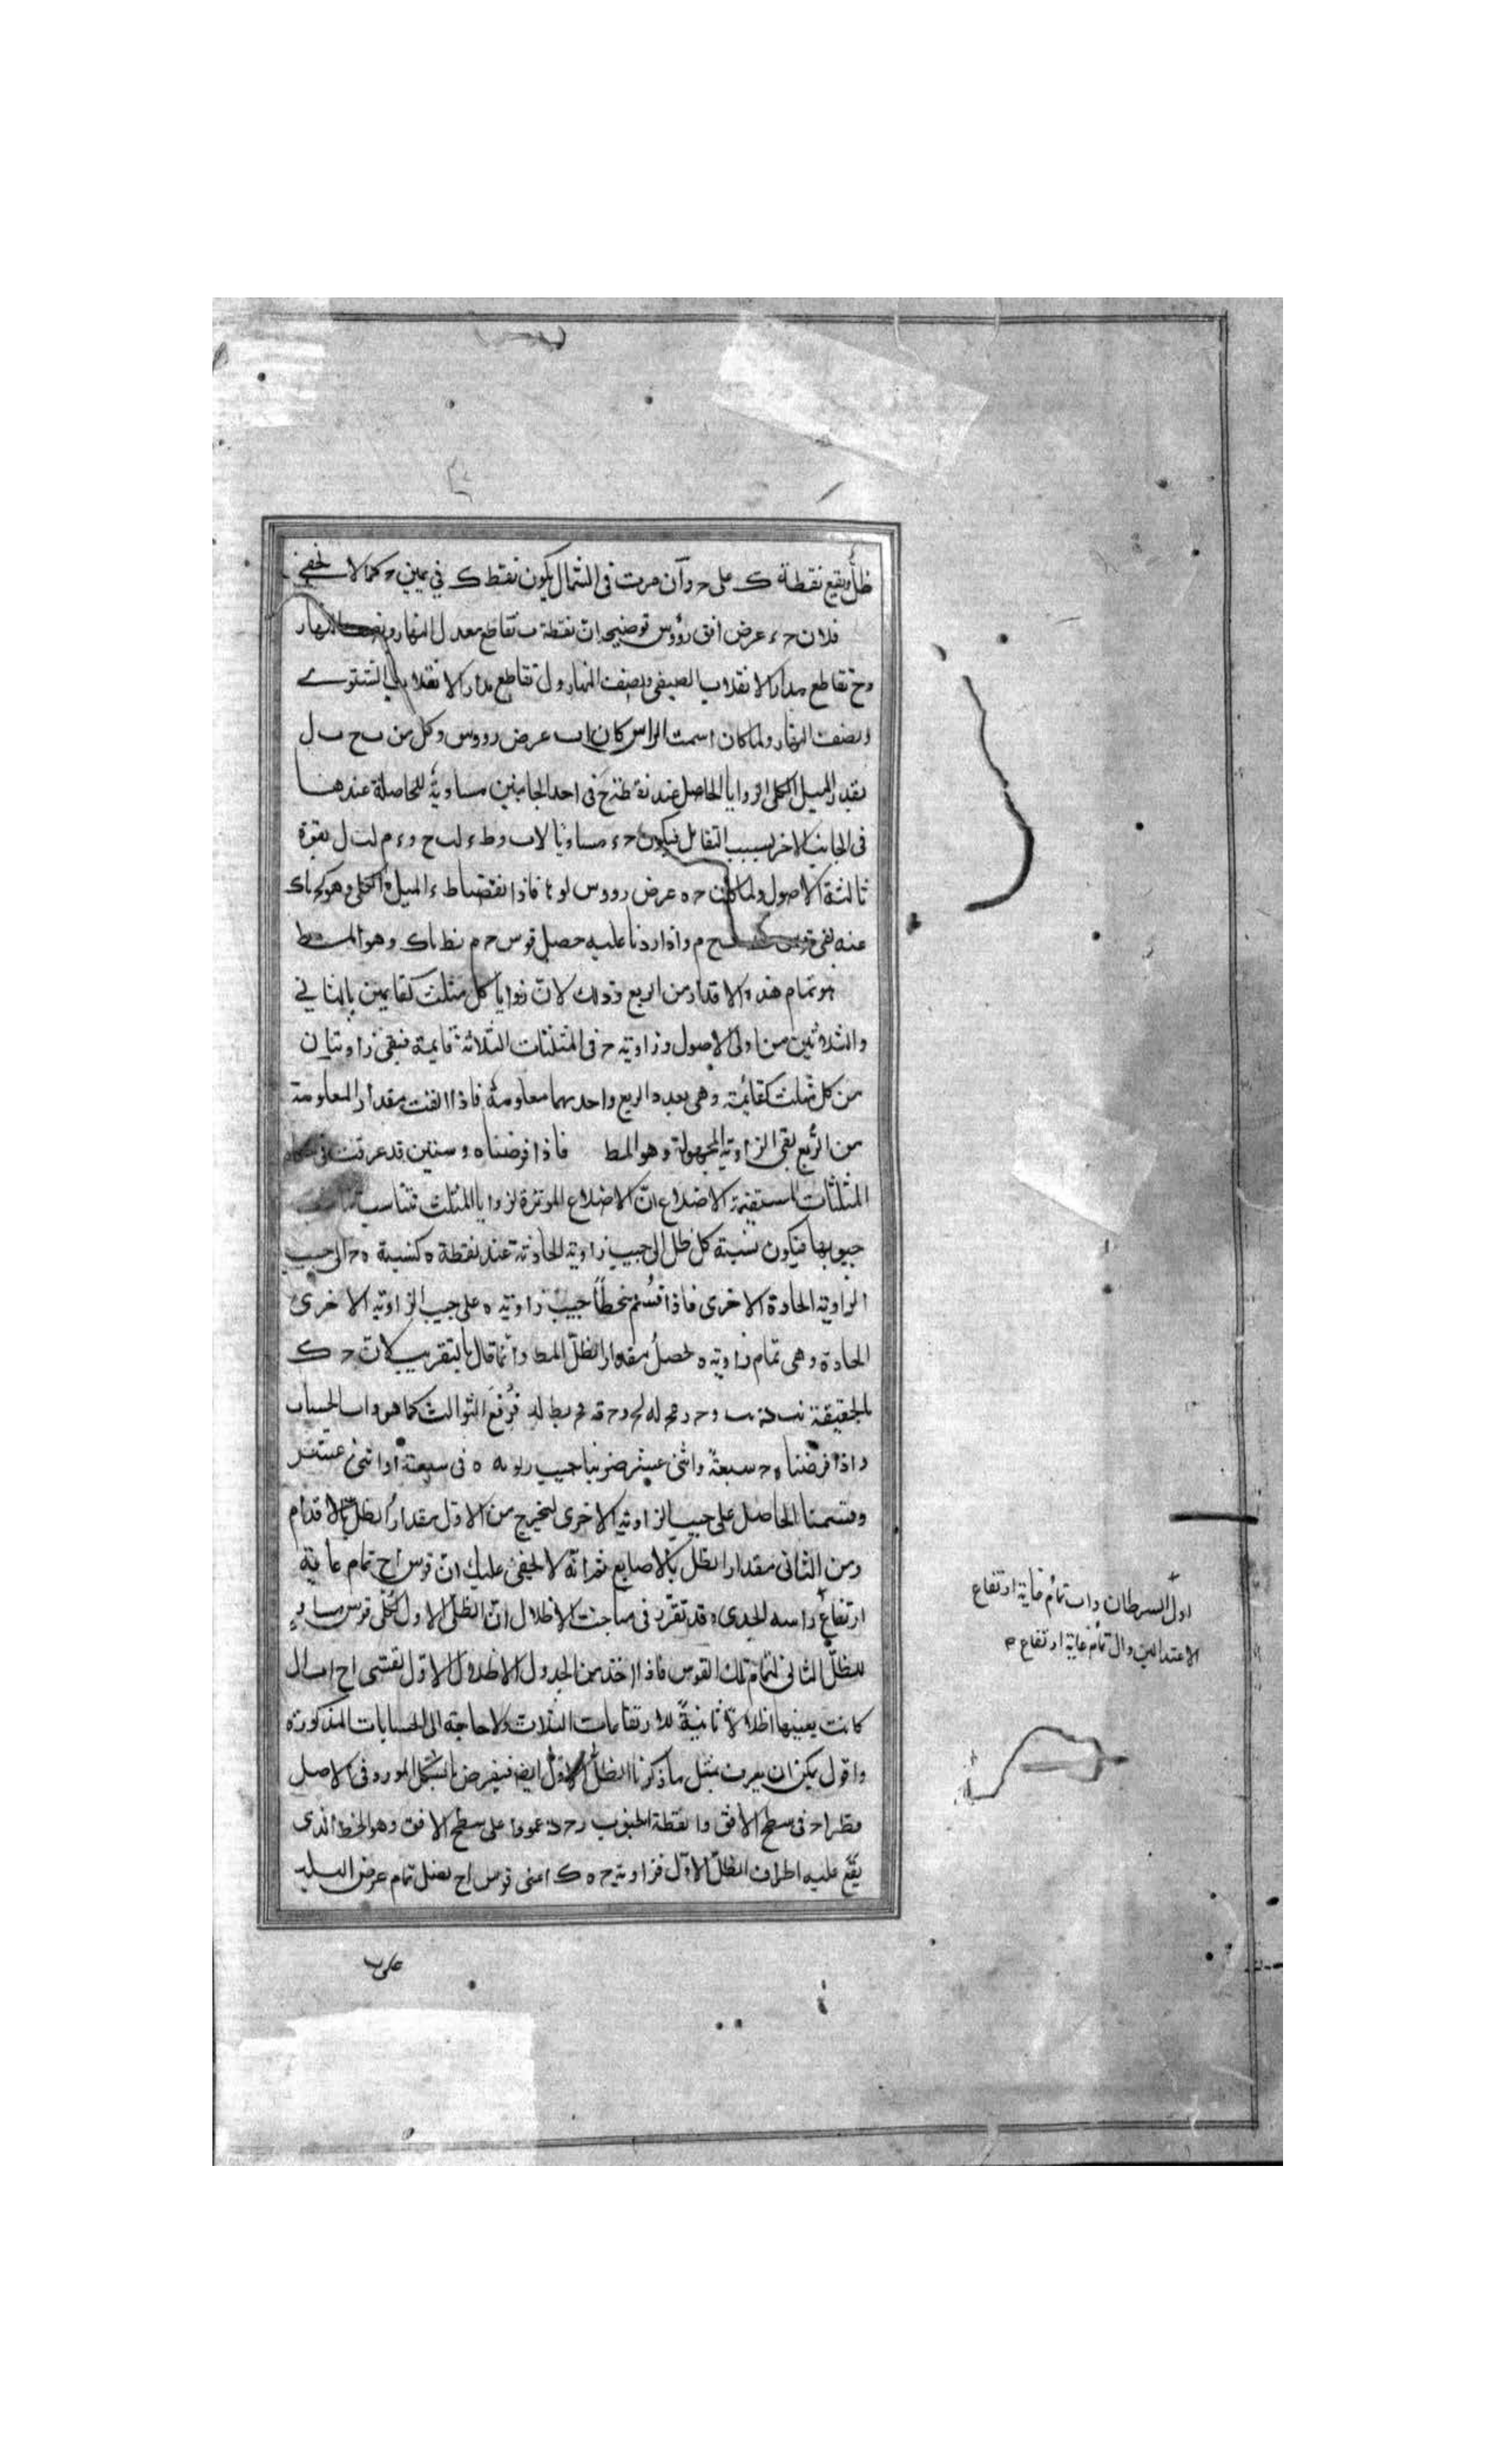 ظل ويقع نقطة ك على ح وان مرت فى الشمال يكون نقطة ك في يمين ح كما لا يخفى
فلان ح ء عرض افق رووس توضيحه ان نقطة ب تقاطع معدل النهار ونصف النهار
وح تقاطع مدار الانقلاب الصيفى ونصف النهار ول تقاطع مدار الانقلاب الشتوي
ونصف النهار ولما كان ا سمت الراس كان اب عرض رووس وكل من ب ح ب ل
بقدر الميل الكلى الزوايا الحاصل عند نقطة ح فى احد الجانبين مساوية للحاصلة عندها
فى الجانب الاخر بسبب التقابل فيكون ح ء مساويا لاب وط ء لب ح وء م لب ل بقوة
ثالثة الاصول ولما كانت ح ه عرض رووس لو فاذا نقصنا ط ء الميل الكلى وهو كح ناك
عنه بقى قوس ح م واذا زدنا عليه حصل قوس ح م نط ناك وهو المط
هو تمام هذه الاقدار من الربع وذلك لان زوايا كل مثلث كقايمتين بالثاني
والثلاثين من اولى الاصول وزاوية ح فى المثلثات الثلاثة قايمة فبقى زاويتان
من كل مثلث كقائمة وهى بعده الربع واحديهما معلومة فاذا القيت مقدار المعلومة
من الربع بقى الزاوية المجهولة وهو المط فاذا فرضناه ء ستين قد عرفت فى
المثلثات المستقيمة الاضلاع ان الاضلاع الموترة لزوايا المثلث تتناسب
جيوبها فيكون نسبة كل ظل الى جيب زاوية الحادثة عند نقطة ه كنسبة ه ح الى جيب
الزاوية الحادة الاخرى فاذا قسم منحطا جيب زاوية ه على جيب الزاوية الاخرى
الحادة وهى تمام زاوية ه لحصل مقدار الظل المط وانما قال بالتقريب لان ح ك
بالحقيقة فرفع الثوالث كما هو داب الحساب
واذا فرضنا ه ح سبعة واثنى عشر ضربنا جيب زاوية ه فى سبعة او اثنى عشر
وقسمنا الحاصل على جيب الزاوية الاخرى ليخرج من الاول مقدار الظل بالاقدام
ومن الثانى مقدار الظل بالاصابع ثم انه لا يخفى عليك ان قوس اح تمام غاية
ارتفاع راس الجدى وقد تقرر فى مباحث الاظلال ان الظل الاول لكل قوس مساو
للظل الثانى لتمام تلك القوس فاذا اخذ من الجدول الاظلال الاول لقسى اح اب ال
كانت بعينها اظلالا ثانية للارتفاعات الثلاث ولا حاجة الى الحسابات المذكورة
واقول يمكن ان يعرف بمثل ما ذكرنا الظل الاول ايضا فيفرض بالشكل المورد فى الاصل
قطر اح فى سطح الافق وا نقطة الجنوب و ح ه عمودا على سطح الافق وهو الخط الذى
يقع عليه اطراف الظل الاول فزاوية ح ه ك اعنى قوس اح بفضل تمام عرض البلد
على
اول السرطان واب تمام غاية ارتفاع
الاعتدالين وال تمام غاية ارتفاع